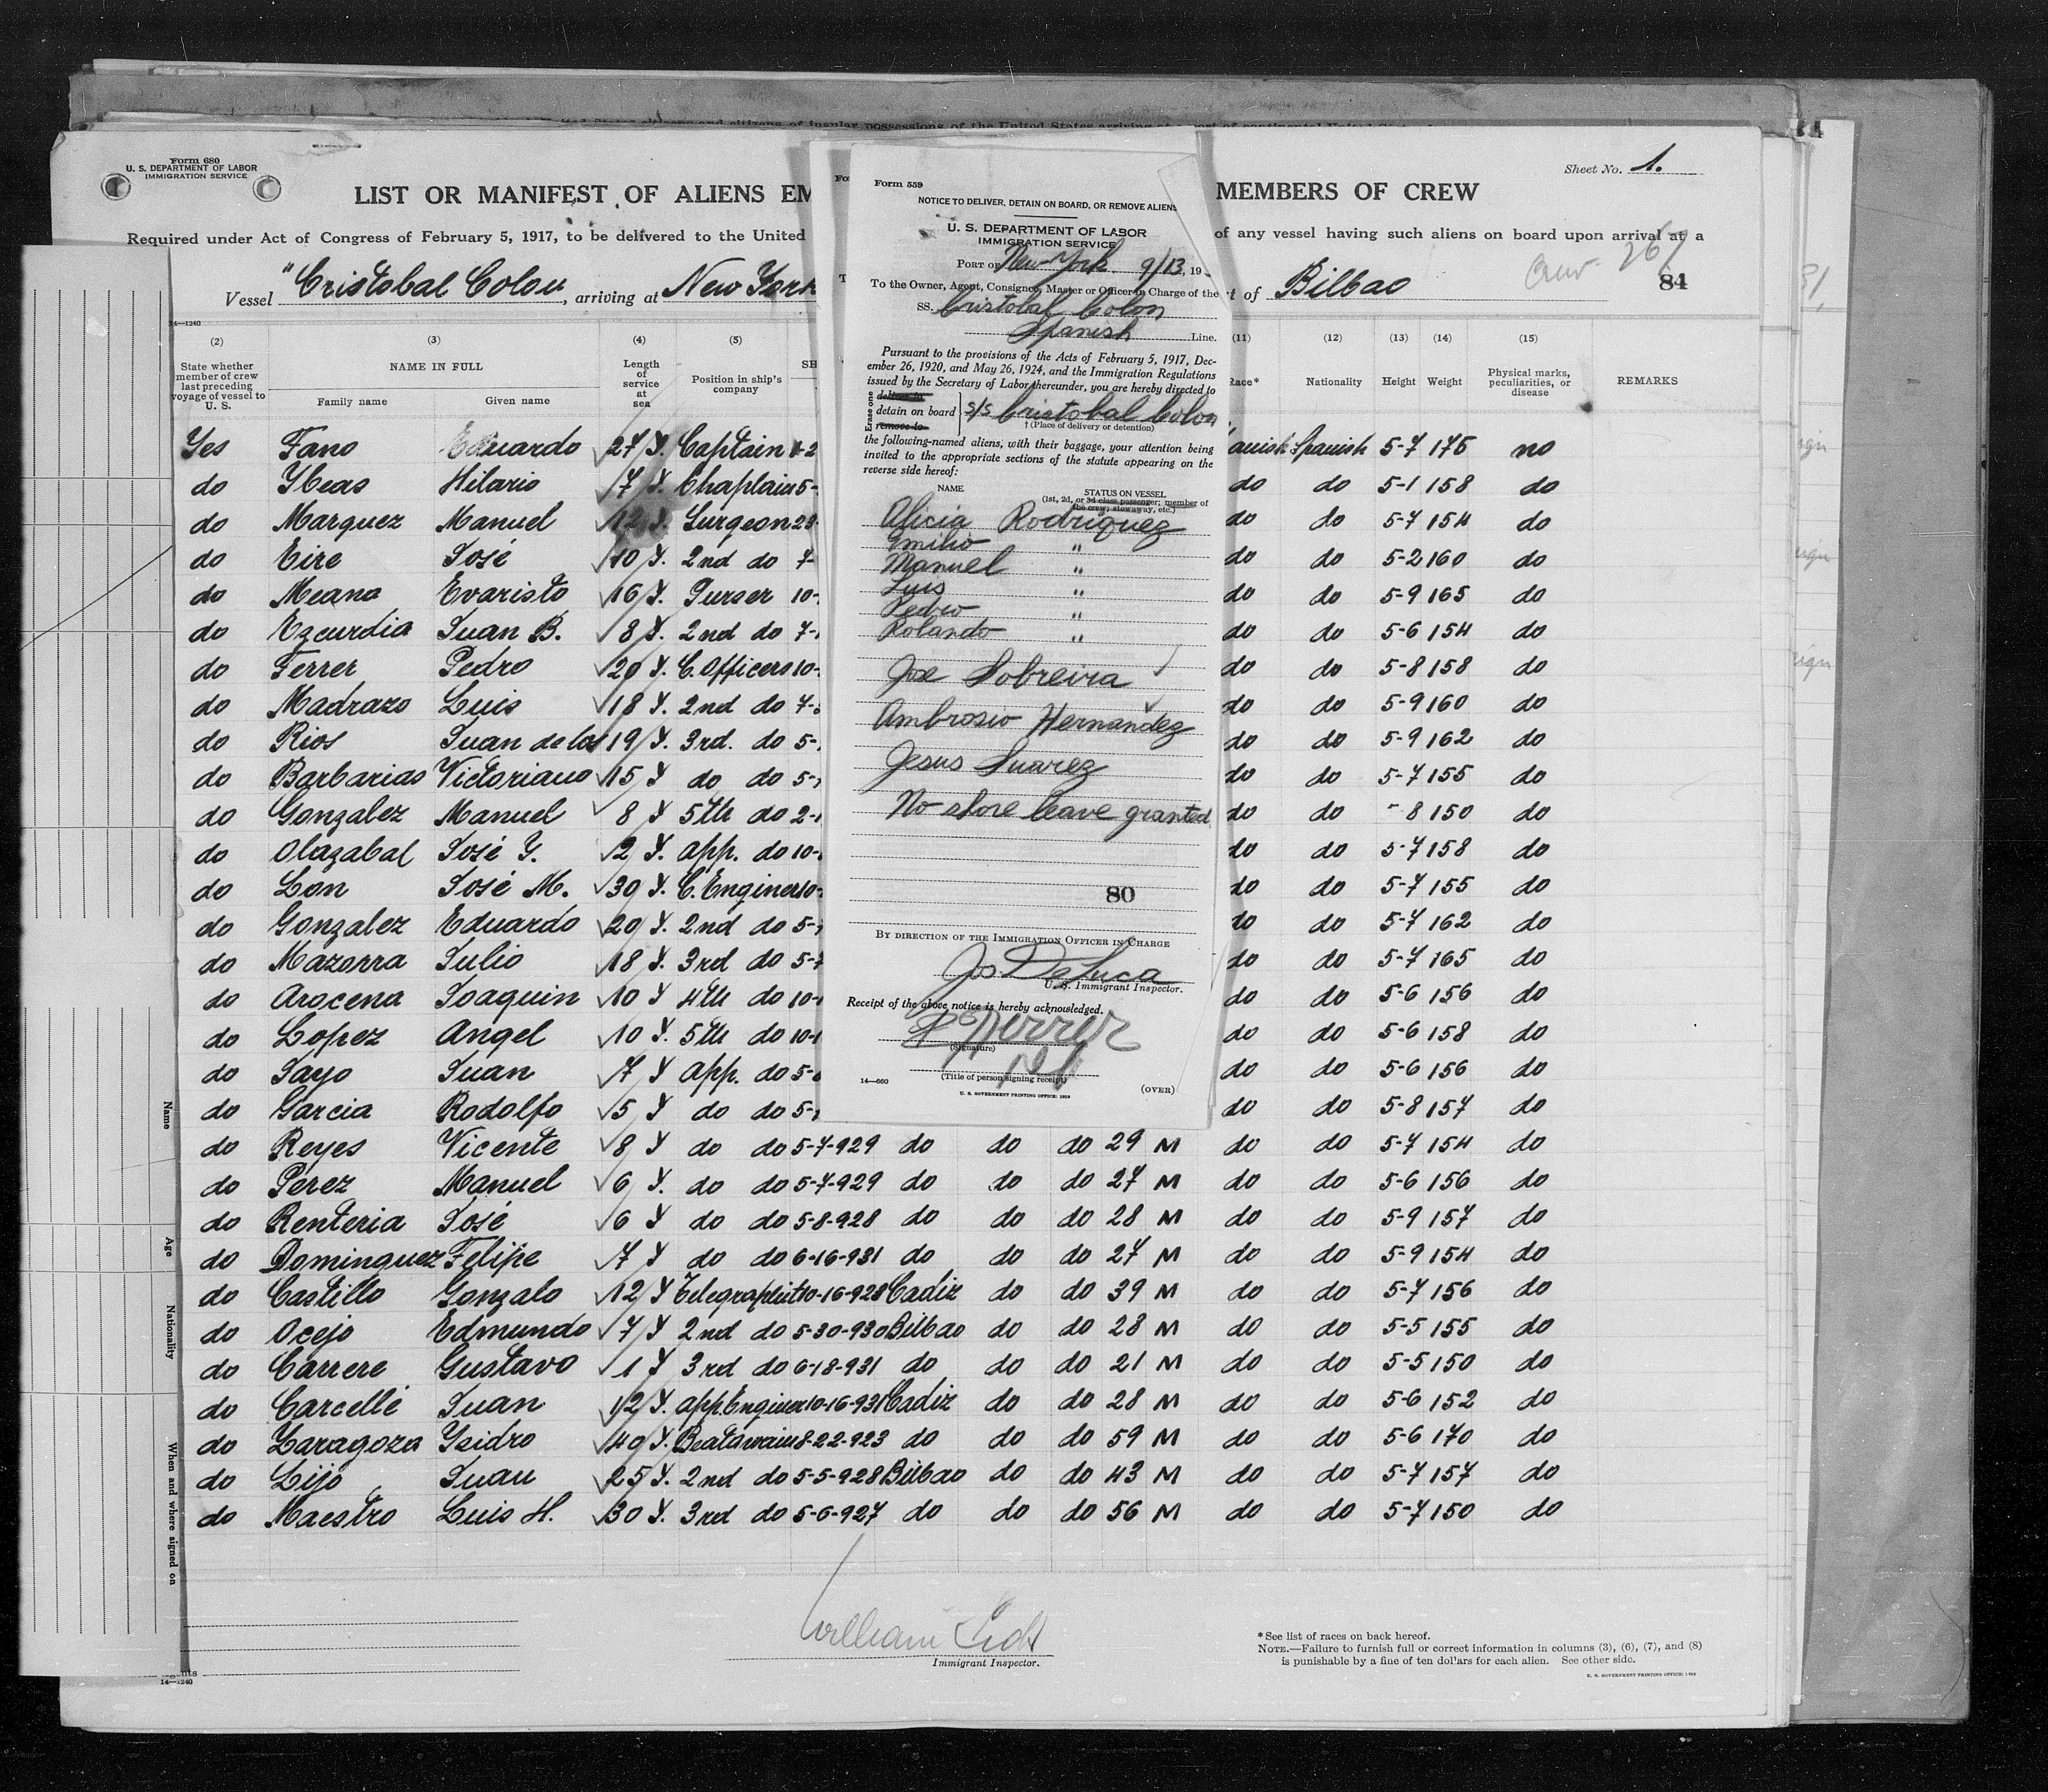 Form 680
U. S. DEPARTMENT OF LABOR
IMMIGRATION SERVICE
Sheet No. 1.
LIST OR MANIFEST OF ALIENS EM
MEMBERS OF CREW
Required under Act of Congress of February 5, 1917, to be delivered to the United
of any vessel having such aliens on board upon arrival at a
Vessel "Cristobal Colon, arriving at New York
rt of Bilbao
Crew 267
84
14—1240
(2) (3) (4) (5) (11) (12) (13) (14) (15)
State whether member of crew last preceding voyage of vessel to U. S.
NAME IN FULL
Family name Given name
Length of service at sea
Position in ship's company
SH
Race* Nationality Height Weight
Physical marks, peculiarities, or disease
REMARKS
Yes Fano Eduardo 27 Y. Captain anish Spanish 5-7 175 no
do Ybeas Hilario 7 Y. Chaplain 5- do do 5-1 158 do
do Marquez Manuel 12 Y. Surgeon 28- do do 5-7 154 do
do Eire José 10 Y. 2nd do 7- do do 5-2 160 do
do Meana Evaristo 16 Y. Purser 10- do do 5-9 165 do
do Ezcurdia Juan B. 8 Y. 2nd do 7- do do 5-6 154 do
do Ferrer Pedro 20 Y. C. Officers 10- do do 5-8 158 do
do Madrazo Luis 18 Y. 2nd do 7- do do 5-9 160 do
do Rios Juan de los 19 Y. 3rd. do 5- do do 5-9 162 do
do Barbarias Victoriano 15 Y do do 5- do do 5-7 155 do
do Gonzalez Manuel 8 Y 5th do 2- do do - 8 150 do
do Olazabal José Y. 2 Y. app. do 10- do do 5-7 158 do
do Lon José M. 30 Y. C. Enginer 10- do do 5-7 155 do
do Gonzalez Eduardo 20 Y. 2nd do 5- do do 5-7 162 do
do Mazorra Julio 18 Y. 3rd do 5-7 do do 5-7 165 do
do Arocena Joaquin 10 Y 4th do 10- do do 5-6 156 do
do Lopez Angel 10 Y. 5th do 10- do do 5-6 158 do
do Sayo Juan 7 Y app. do 5- do do 5-6 156 do
do Garcia Rodolfo 5 Y do do 5- do do 5-8 157 do
do Reyes Vicente 8 Y do do 5-7-929 do do do 29 M do do 5-7 154 do
do Perez Manuel 6 Y. do do 5-7-929 do do do 27 M do do 5-6 156 do
do Renteria José 6 Y do do 5-8-928 do do do 28 M do do 5-9 157 do
do Dominguez Felipe 7 Y do do 6-16-931 do do do 27 M do do 5-9 154 do
do Castillo Gonzalo 12 Y Telegraphist 10-16-928 Cadiz do do 39 M do do 5-7 156 do
do Ocejo Edmundo 7 Y 2nd do 5-30-930 Bilbao do do 28 M do do 5-5 155 do
do Carrere Gustavo 1 Y 3rd do 6-18-931 do do do 21 M do do 5-5 150 do
do Carcellé Juan 12 Y. app. Enginer 10-16-931 Cadiz do do 28 M do do 5-6 152 do
do Zaragoza Ysidro 40 Y. Boatswain 8-22-923 do do do 59 M do do 5-6 170 do
do Lijo Juan 25 Y. 2nd do 5-5-928 Bilbao do do 43 M do do 5-7 157 do
do Maestro Luis H. 30 Y. 3rd do 5-6-927 do do do 56 M do do 5-7 150 do
Immigrant Inspector.
*See list of races on back hereof.
NOTE.—Failure to furnish full or correct information in columns (3), (6), (7), and (8)
is punishable by a fine of ten dollars for each alien. See other side.
14—1240
Name
Age
Nationality
When and where signed on
Form 559
NOTICE TO DELIVER, DETAIN ON BOARD, OR REMOVE ALIENS
U. S. DEPARTMENT OF LABOR
IMMIGRATION SERVICE
PORT OF New York 9/13, 19
To the Owner, Agent, Consignee, Master or Officer in Charge of the
SS. Cristobal Colon
Spanish Line.
Pursuant to the provisions of the Acts of February 5, 1917, Dec-
ember 26, 1920, and May 26, 1924, and the Immigration Regulations
issued by the Secretary of Labor thereunder, you are hereby directed to
Erase one
deliver to
detain on board
remove to
S/S Cristobal Colon
† (Place of delivery or detention)
the following-named aliens, with their baggage, your attention being
invited to the appropriate sections of the statute appearing on the
reverse side hereof:
NAME STATUS ON VESSEL
(1st, 2d, or 3d class passenger; member of
the crew; stowaway, etc.)
Alicia Rodriguez
Emilio "
Manuel "
Luis "
Pedro "
Rolando "
Jose Sobreira
Ambrosio Hernandez
Jesus Suarez
No shore leave granted.
80
BY DIRECTION OF THE IMMIGRATION OFFICER IN CHARGE
Jos. DeLuca
U. S. Immigrant Inspector.
Receipt of the above notice is hereby acknowledged.
P Ferrer
(Signature)
(Title of person signing receipt)
14—660
(OVER)
U. S. GOVERNMENT PRINTING OFFICE: 1929